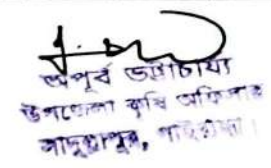 অপূর্ব ভট্টাচার্য্য
উপজেলা কৃষি অফিসার
সাদুল্লাপুর, গাইবান্ধা।